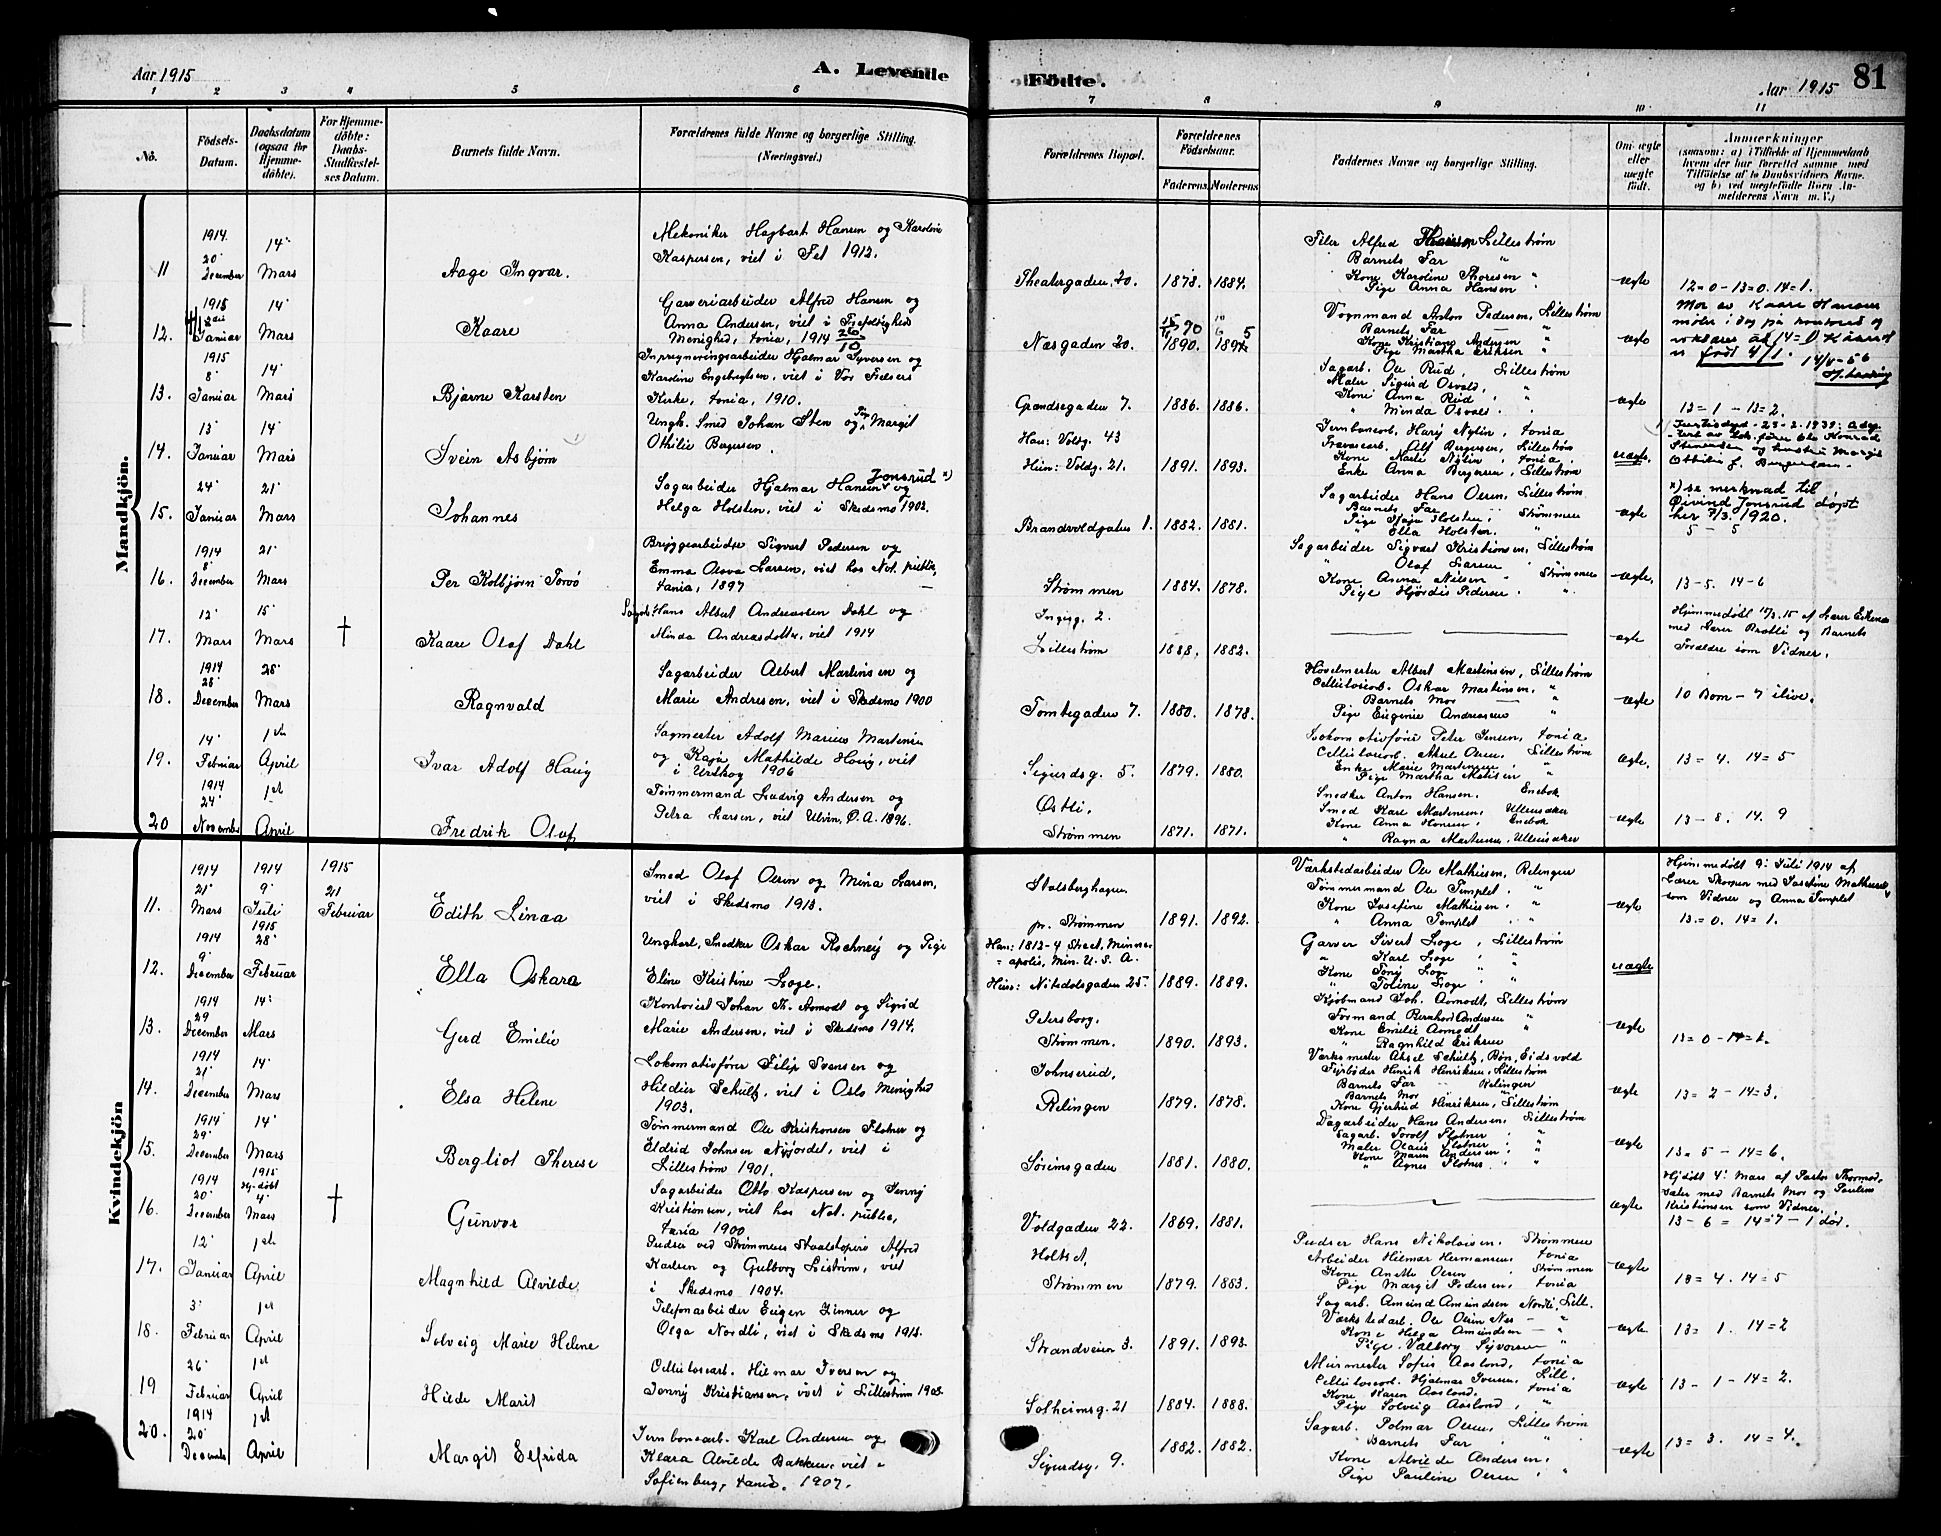 Aar 1915
A. Levende Födte.
Aar 1915
81
1 2 3 4 5 6 7 8 9 10 11
No.
Födsels-
Datum.
Daabsdatum
(ogsaa for
Hjemme-
döbte).
For Hjemme-
döbte:
Daabs-
Stadfæstel-
ses Datum.
Barnets fulde Navn.
Forældrenes fulde Navne og borgerlige Stilling.
(Næringsvei.)
Forældrenes Bopæl.
Forældrenes
Födselsaar.
Faderens. Moderens.
Faddernes Navne og borgerlige Stilling.
Om ægte
eller
uægte
født.
Anmærkninger
(saasom: a) i Tilfælde af Hjemmedaab
hvem der har forrettet samme med
Tilföielse af to Daabsvidners Navne,
og b) ved uægtefødte Börn An-
melderens Navn m. V.)
Mandkjön.
11
1914
20
December
14
Mars
Aage Ingvar.
Mekaniker Hagbart Hansen og Karoline
Kaspersen, viet i Fet 1912.
Theatergaden 20.
1878. 1884.
Feier Alfred Lillestrøm
Barnets Far "
Kone Karoline Thoresen "
Pige Anna Hansen "
ægte
12=0-13=0. 14=1.
12.
1915
Januar
14
Mars
Kaare
Garveriarbeider Alfred Hansen og
Anna Andersen, viet i Trefoldighed
Menighed, Kania, 1914 26/10
Næsgaden 20.
1890.
Vognmand Anton Pedersen, Lillestrøm
Barnets Far "
Kone Kristiane Andersen "
Pige Martha Eriksen "
ægte
Mor av Kaare Hansen
møter i dag på kontoret og
født 4/1. 14/4-56
13.
1915
8
Januar
14
Mars
Bjarne Karsten
Inpregneringsarbeider Hjalmar Syversen og
Karoline Engebregtsen, viet i Vor Frelsers
Kirke, Kania, 1910.
Grændsegaden 7.
1886. 1886.
Sagarb. Ole Rud, Lillestrøm
Maler Sigurd Osvald, "
Kone Anna Rud, "
" Minda Osvald. "
ægte
13=1-13=2.
14.
13
Januar
14
Mars
Svein Asbjørn
Ungk. Smed Johan Sten og Pige Margit
Othilie Bergersen.
Han: Voldg. 43
Hun: Voldg. 21.
1891. 1893.
Jernbanearb. Harry Nylin, Kania
Prøvearb. Alf Bergersen, Lillestrøm
Kone Marti Nylin, Kania
Enke Anna Bergersen, Lillestrøm
uægte.
15.
24
Januar
21
Mars
Johannes
Jonsrud x)
Sagarbeider Hjalmar Hansen og
Helga Holsten, viet i Skedsmo 1902.
Brandvoldgaten 1.
1882. 1881.
Sagarbeider Hans Olsen, Lillestrøm
Barnets Far "
Pige Maja Holsten, Strømmen
Ella Holsten. "
ægte
x) se merknad til
Øivind Jonsrud døpt
her 7/3. 1920.
5-5
16.
1914
8
December
21
Mars
Per Kolbjørn Torvö
Bryggearbeider Sigvart Pedersen og
Emma Olava Larsen, viet hos Not. public,
Kania, 1897
Strømmen
1884. 1878.
Sagarbeider Sigvart Kristiansen, Lillestrøm
" Olaf Larsen "
Kone Anna Nilsen Strømmen
Pige Hjördis Pedersen "
ægte.
13-5. 14-6
17.
12
Mars
15
Mars
†
Kaare Olaf Dahl
Sagarb. Hans Albert Andreassen Dahl og
Minda Andreasdotter, viet 1914
Ingsg. 2.
Lillestrøm
1888. 1882.
ægte
Hjemmedøbt 15/3.15 af Lærer
med Lærer Bratli og Barnets
Forældre som Vidner.
18.
1914
25
December
28
Mars
Ragnvald
Sagarbeider Albert Martinsen og
Marie Andresen, viet i Skedsmo 1900
Tomtegaden 7.
1880. 1878.
Høvelmester Albert Martinsen, Lillestrøm
Cellulosearb. Oskar Martinsen, "
Barnets Mor "
Pige Eugenie Andreasen "
ægte
10 Barn - 7 ilive.
19.
14
Februar
1ste
April
Ivar Adolf Haug
Sagmester Adolf Marius Martinsen
og Kaja Mathilde Haug, viet
i Urskog 1906
Sigurdsg. 5.
1879. 1880.
Lokomotivfører Peter Jensen, Kania
Cellulosearb. Aksel Olsen, Lillestrøm
Enke Marie Martinsen "
Pige Martha Matisen "
ægte.
13=4. 14=5
20
1914
24
November
1st
April
Fredrik Olaf
Tømmermand Ludvig Andersen og
Petra Larsen, viet Ulvin, P.A. 1896.
Østli,
Strømmen
1871. 1871.
Snedker Anton Hansen. Enebak
Smed Karl Martinsen, Ullensaker
Kone Anna Hansen, Enebak
" Ragna Martinsen, Ullensaker
ægte
13-8, 14. 9
Kvindekjön
11.
1914
21
Mars
1914
9
Juli
1915
21
Februar
Edith Linaa
Smed Olaf Olsen og Mina Larsen,
viet i Skedsmo 1913.
Stalsberghagen
pr. Strømmen
1891. 1892.
Værkstedarbeider Ole Mathisen, Relingen
Tømmermand Ole Templet. "
Kone Josefine Mathisen "
" Anna Templet "
ægte
Hjemmedøbt 9. Juli 1914 af
Lærer Skogen med Josefine Mathisen
som Vidner og Anna Templet
13=0. 14=1.
12.
1914
9
December
1915
28
Februar
Ella Oskara
Ungkarl, Snedker Oskar Rochney og Pige
Eline Kristine Loge.
Han: 1812-4 Street, Minnea-
apolis, Min. U. S. A.
Hun: Nitedalsgaden 25.
1889. 1889.
Garver Sivert Loge, Lillestrøm
" Karl Loge "
Kone Tony Loge "
" Toline Loge "
uægte
13.
1914
29
December
14
Mars
Gerd Emilie
Kontorist Johan Th. Aamodt og Sigrid
Marie Andersen, viet i Skedsmo 1914.
Petersborg,
Strømmen.
1890. 1893.
Kjøbmand Joh. Aamodt, Lillestrøm
Formand Bernhard Andersen "
Kone Emilie Aamodt "
" Ragnhild Eriksen "
ægte
13=0-14=1.
14.
1914
21
December
14
Mars
Elsa Helene
Lokomotivfører Filip Svensen og
Hildur Schultz, viet i Oslo Menighed
1903.
Johnsrud,
Relingen
1879. 1878.
Værksmester Aksel Schultz, Bøn, Eidsvold
Fyrbøder Henrik Henriksen, Lillestrøm
Barnets Far Relingen
Barnets Mor "
Kone Gjertrud Henriksen, Lillestrøm
ægte
13=2-14=3.
15.
1914
29
December
14
Mars
Bergliot Therese
Tømmermand Ole Kristiansen Flotner og
Eldrid Johnsen Nyjordet, viet i
Lillestrøm 1901.
Sørumsgaden
1881. 1880.
Dagarbeider Hans Andersen, Lillestrøm
Sagarb. Torolf Flotner "
Maler Olaus Flotner "
Kone Maren Andersen "
" Agnes Flotner. "
ægte
13=5-14=6.
16.
1914
20
December
1915
Hj.døbt
4
Mars
†
Gunvor
Sagarbeider Otto Kaspersen og Jenny
Kristiansen, viet hos Not. public,
Kania 1900
Voldgaden 22.
1869. 1881.
ægte
Hjdøbt 4. Mars af Pastor Thormod-
sæter med Barnets Mor og Pauline
Kristiansen som Vidner.
13-6=14=7-1 død.
17.
12
Januar
1ste
April
Magnhild Alvilde
Pudser ved Strømmens Staalstøperi Alfred
Karlsen og Gulborg Liström, viet
i Skedsmo 1904.
Holtet,
Strømmen
1879. 1883.
Pudser Hans Nikolaisen. Strømmen
Arbeider Hilmar Hermansen, Kania
Kone Anette Olsen Strømmen
Pige Margit Pedersen, Kania
ægte
13=4. 14=5
18.
3
Februar
1st
April
Solveig Marie Helene
Telefonarbeider Eugen Zinner og
Olga Nordli, viet i Skedsmo 1913.
Strandveien 3.
1891. 1893.
Sagarb. Amund Amundsen Nordli Lill.
Værkstedarb. Ole Olsen Nes "
Kone Helga Amundsen "
Pige Valborg Syversen "
ægte
13=1. 14=2
19
26
Februar
1st
April
Hilde Marit
Cellulosearb. Hilmar Iversen og
Jenny Kristiansen, viet i Lillestrøm 1903.
Solheimsg. 21
1884. 1888.
Murmester Sofus Aasland, Kania
Cellulosearb. Hjalmar Iversen, Lill.
Kone Karen Aasland. Kania
Pige Solveig Aasland, "
ægte
13-1-14=2.
20.
1914
20
December
1st
April
Margit Elfrida
Jernbanearb. Karl Andersen og
Klara Alvilde Bakken, viet i
Sofienberg, Kania. 1907.
Sigurdsg. 9.
1882. 1882.
Sagarb. Polmar Olsen, Lillestrøm
Barnets Far "
Kone Alvilde Andersen "
Pige Pauline Olsen "
ægte
13=3. 14=4.